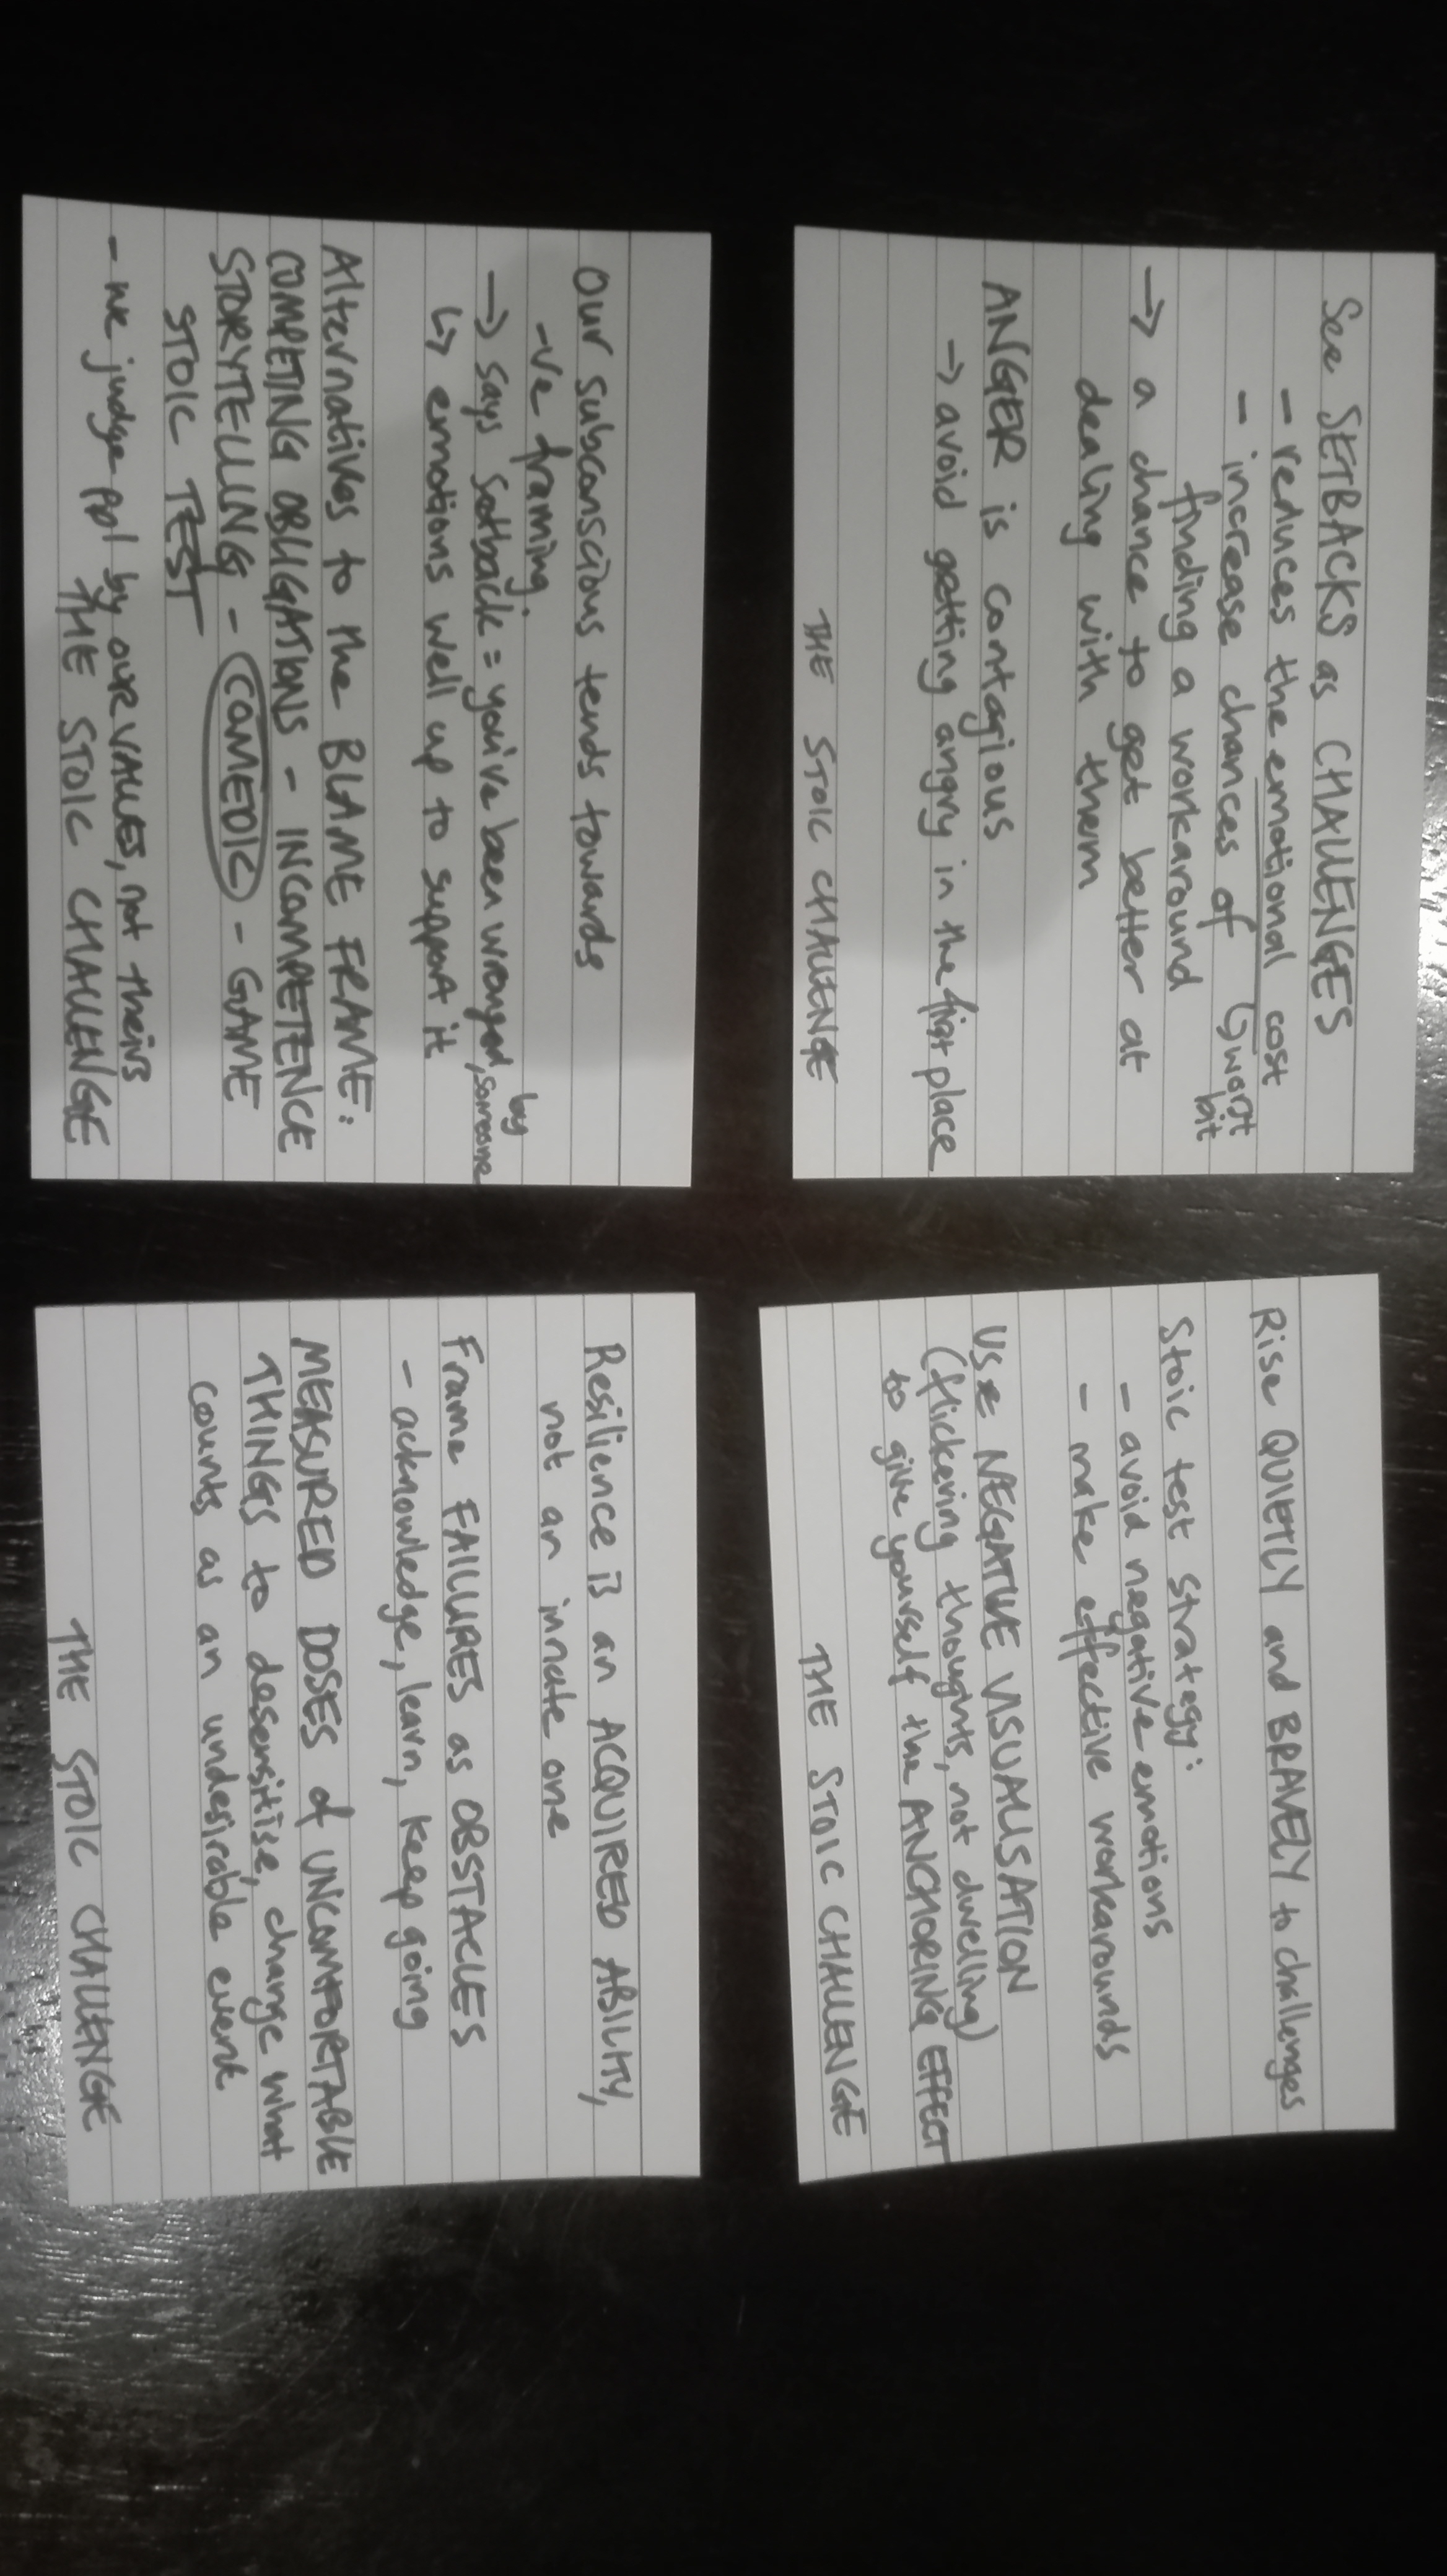 See SETBACKS as CHALLENGES
- reduces the emotional cost
↳ worst
bit
- increase chances of
finding a workaround
→ a chance to get better at
dealing with them
ANGER is contagious
→ avoid getting angry in the first place
THE STOIC CHALLENGE
Rise QUIETLY and BRAVELY to challenges
Stoic test strategy:
- avoid negative emotions
- make effective workarounds
USE NEGATIVE VISUALISATION
(flickering thoughts, not dwelling)
to give yourself the ANCHORING EFFECT
THE STOIC CHALLENGE
Our subconscious tends towards
-ve framing.
→ says setback = you've been wronged, by someone
↳ emotions well up to support it
Alternatives to the BLAME FRAME:
COMPETING OBLIGATIONS - INCOMPETENCE
STORYTELLING - COMEDIC - GAME
STOIC TEST
- we judge ppl by OUR VALUES, not theirs
THE STOIC CHALLENGE
Resilience is an ACQUIRED ABILITY,
not an innate one
Frame FAILURES as OBSTACLES
- acknowledge, learn, keep going
MEASURED DOSES of UNCOMFORTABLE
THINGS to desensitise, change what
counts as an undesirable event
THE STOIC CHALLENGE